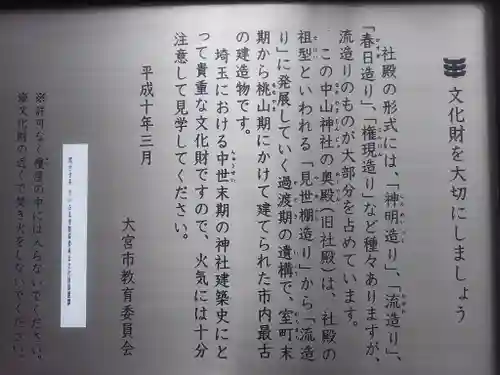 文化財を大切にしましょう
社殿の形式には、「神明造り」、「流造り」、
「春日造り」、「権現造り」など種々ありますが、
流造りのものが大部分を占めています。
この中山神社の奥殿(旧社殿)は、社殿の
祖型といわれる「見世棚造り」から「流造
り」に発展していく過渡期の遺構で、室町末
期から桃山期にかけて建てられた市内最古
の建造物です。
埼玉における中世末期の神社建築史にと
って貴重な文化財ですので、火気には十分
注意して見学してください。
平成十年三月
大宮市教育委員会
※許可なく覆屋の中には入らないでください。
※文化財の近くで焚き火をしないでください。